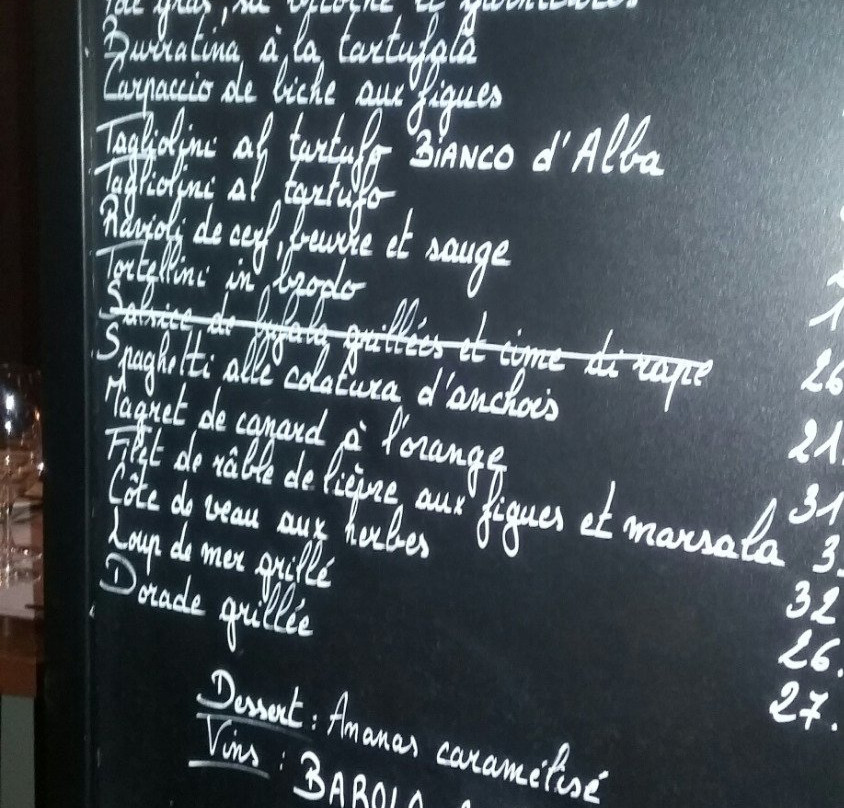 Burratina à la tartufala
Carpaccio de biche aux figues
Tagliolini al tartufo BIANCO d'Alba
Tagliolini al tartufo
Ravioli de cerf, beurre et sauge
Tortellini in brodo
de bufala grillées et cime di rape 26
Spaghetti alle colatura d'anchois 21.
Magret de canard à l'orange 31
Filet de râble de lièvre aux figues et marsala 3
Côte de veau aux herbes 32
Loup de mer grillé 26.
Dorade grillée 27.
Dessert : Ananas caramélisé
Vins : BAROLO